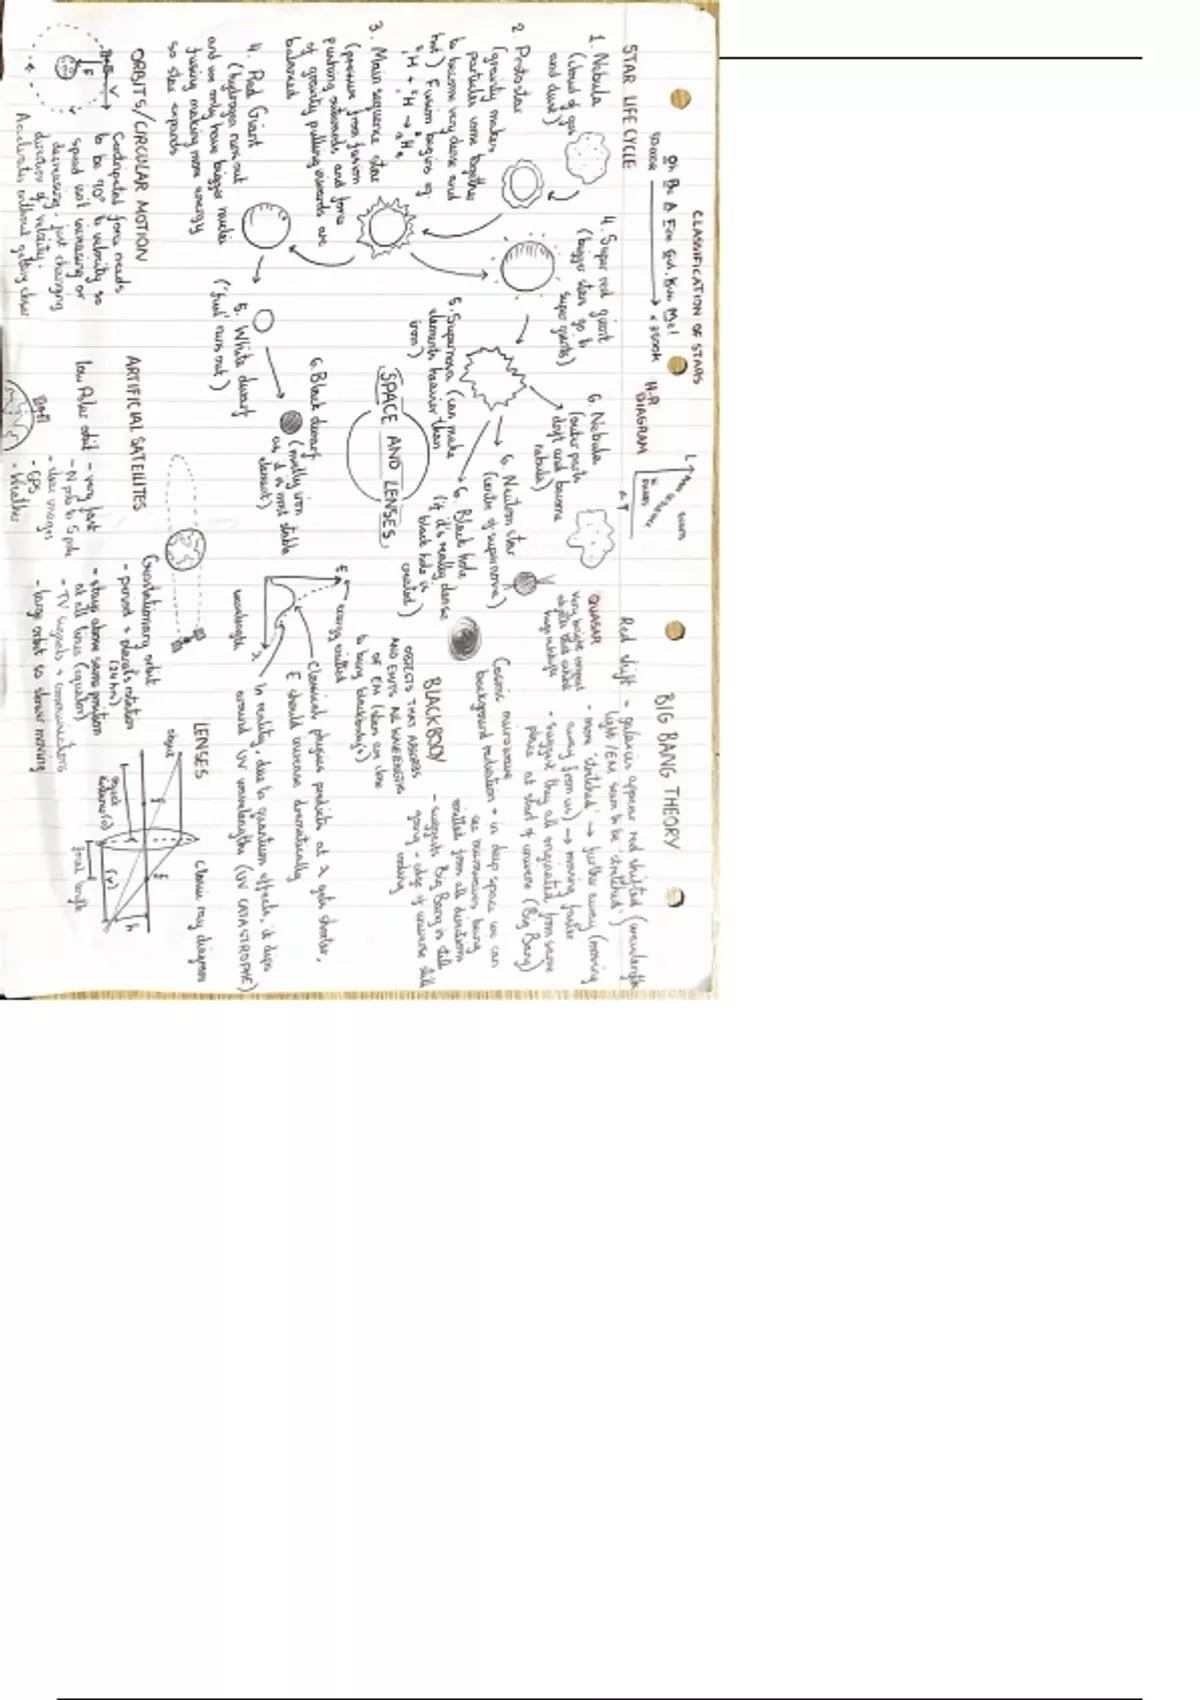 CLASSIFICATION OF STARS
Oh Be A Fine Girl, Kiss Me!
50000K
< 3500K
H-R
DIAGRAM
L
T
STAR LIFE CYCLE
1. Nebula
(cloud of gas
and dust)
2. Protostar
(gravity makes
particles come together
to become very dense and
hot) Fusion begins eg.
3. Main sequence star
(pressure from fusion
pushing outwards and force
of gravity pulling inwards are
balanced
4. Red Giant
(hydrogen runs out
and we only have bigger nuclei
fusing making more energy
so star expands
4. Super red giant
(bigger stars go to
super giants)
5. Supernova (can make
elements heavier than
iron)
5. White dwarf
('fuel' runs out)
6. Black dwarf
(mostly iron
as it is most stable
element)
6. Nebula
(outer parts
drift and become
nebula)
6. Neutron star
(centre of supernova)
6. Black hole
(if it's really dense
black hole is
created)
SPACE AND LENSES
BIG BANG THEORY
Red shift - galaxies appear red shifted (wavelength
light/EM seem to be 'stretched')
- more 'stretched' → further away (moving
away from us) → moving faster
- suggest they all originated from same
place at start of universe (Big Bang)
QUASAR
very bright
objects that
Cosmic microwave
background radiation → in deep space we can
see microwaves being
emitted from all directions
- suggests Big Bang is still
going - edge of universe still
cooling
BLACKBODY
OBJECTS THAT ABSORB
AND EMITS ALL WAVELENGTHS
OF EM (stars are close
to being blackbody's)
E
energy emitted
λ
wavelength
Classical physics predicts as λ gets shorter,
E should increase dramatically
In reality, due to quantum effects, it dips
around UV wavelengths (UV CATASTROPHE)
ORBITS/CIRCULAR MOTION
V
F
Centripetal force needs
to be 90° to velocity so
speed isn't increasing or
decreasing - just changing
direction of velocity.
Accelerates without getting closer
ARTIFICIAL SATELLITES
Low Polar orbit - very fast
- N pole to S pole
- clear images
- GPS
- Weather
Geostationary orbit
- period = planet's rotation
(24 hrs)
- stays above same position
at all times (equator)
- TV signals + communications
- large orbit so slower moving
LENSES
Classic ray diagram
object
F
F
object
distance (u)
(v)
focal length
h